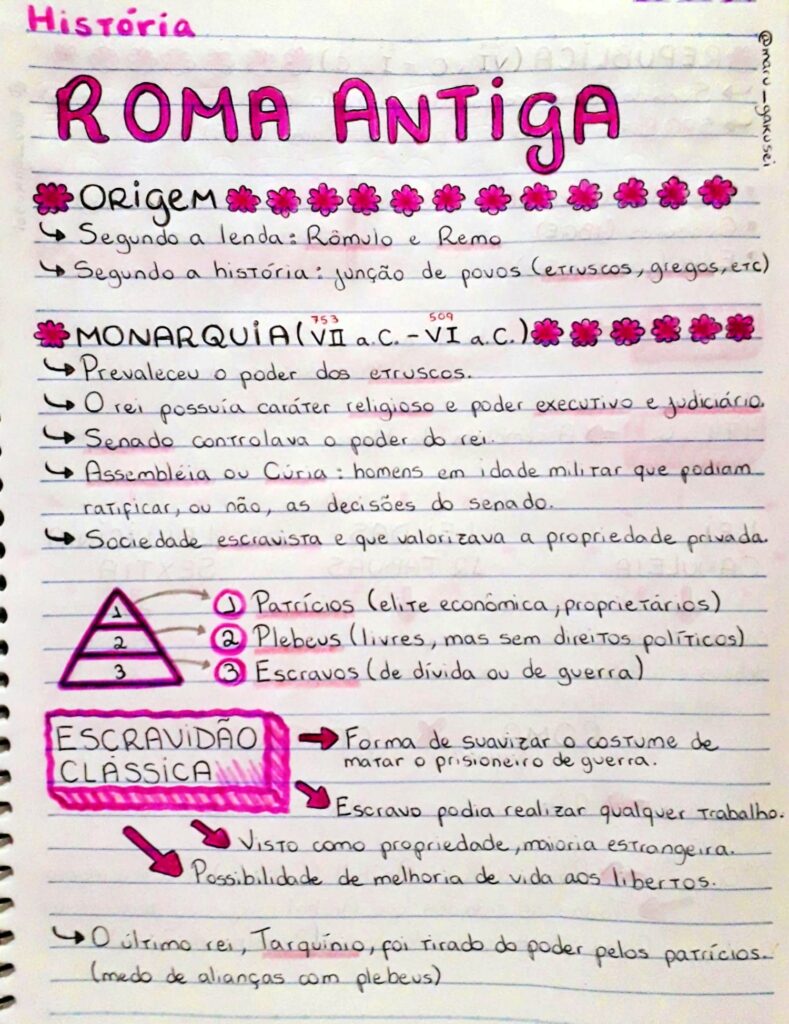 História
@maru_gakusei
ROMA ANTIGA
ORIGEM
↳ Segundo a lenda: Rômulo e Remo
↳ Segundo a história: junção de povos (etruscos, gregos, etc)
753 509
MONARQUIA (VII a.C. - VI a.C.)
↳ Prevaleceu o poder dos etruscos.
↳ O rei possuía caráter religioso e poder executivo e judiciário.
↳ Senado controlava o poder do rei.
↳ Assembléia ou Cúria: homens em idade militar que podiam
ratificar, ou não, as decisões do senado.
↳ Sociedade escravista e que valorizava a propriedade privada.
1 → 1 Patrícios (elite econômica, proprietários)
2 → 2 Plebeus (livres, mas sem direitos políticos)
3 → 3 Escravos (de dívida ou de guerra)
ESCRAVIDÃO
CLÁSSICA
→ Forma de suavizar o costume de
matar o prisioneiro de guerra.
→ Escravo podia realizar qualquer trabalho.
→ Visto como propriedade, maioria estrangeira.
→ Possibilidade de melhoria de vida aos libertos.
↳ O último rei, Tarquínio, foi tirado do poder pelos patrícios.
(medo de alianças com plebeus)